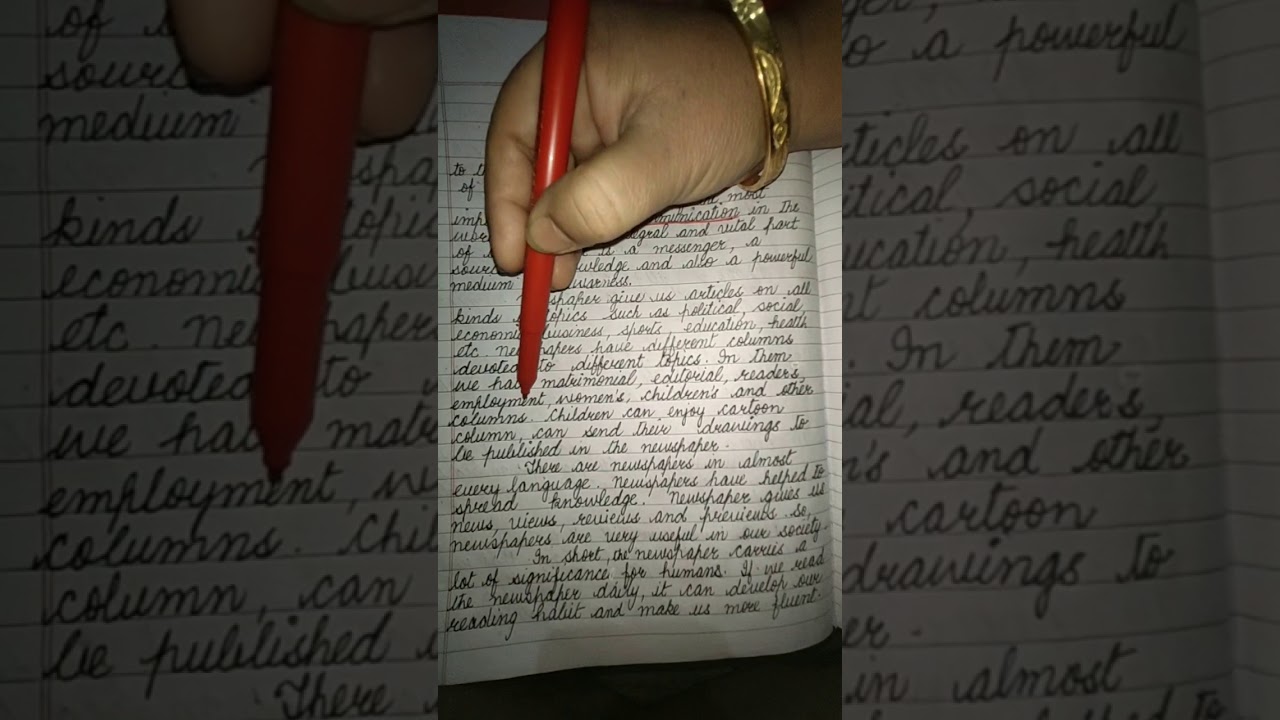 to
of most
munication in the
egral and vital part
of is a messenger, a
wledge and also a powerful
medium warness.
spaper give us articles on all
kinds topics such as political, social,
economi business, sports, education, health
etc. ne papers have different columns
devoted to different topics. In them
we ha matrimonial, editorial, readers,
employment, women's, children's and other
columns. Children can enjoy cartoon
column, can send their drawings to
be published in the newspaper.
There are newspapers in almost
every language. Newspapers have helped to
spread knowledge. Newspaper gives us
news, views, reviews and previews. So,
newspapers are very useful in our society.
In short, the newspaper carries a
lot of significance for humans. If we read
the newspaper daiy, it can develop our
reading habit and make us more fluent.